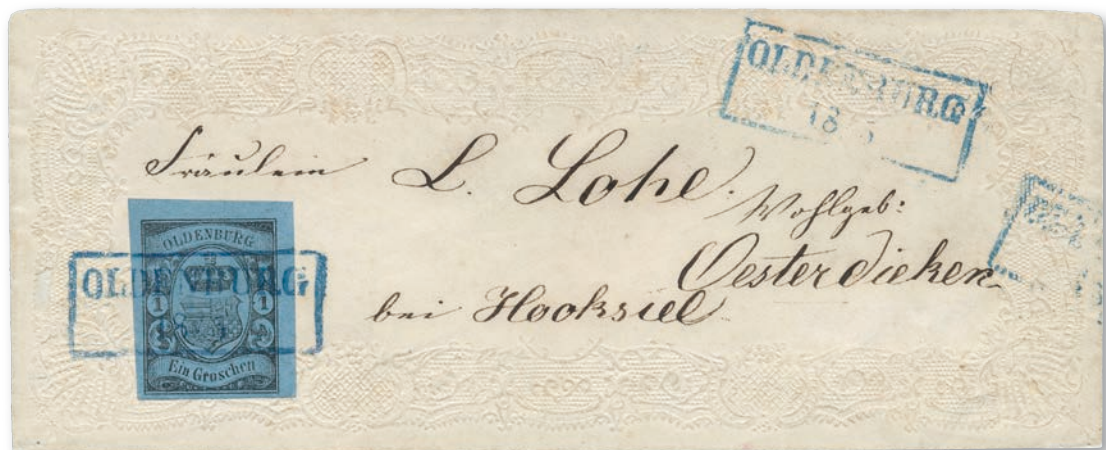 OLDENBURG
18
Fräulein L. Lohe.
Wohlgeb:
Oesterdieken
bei Hooksiel
OLDENBURG
OLDENBURG
1 1
Ein Groschen